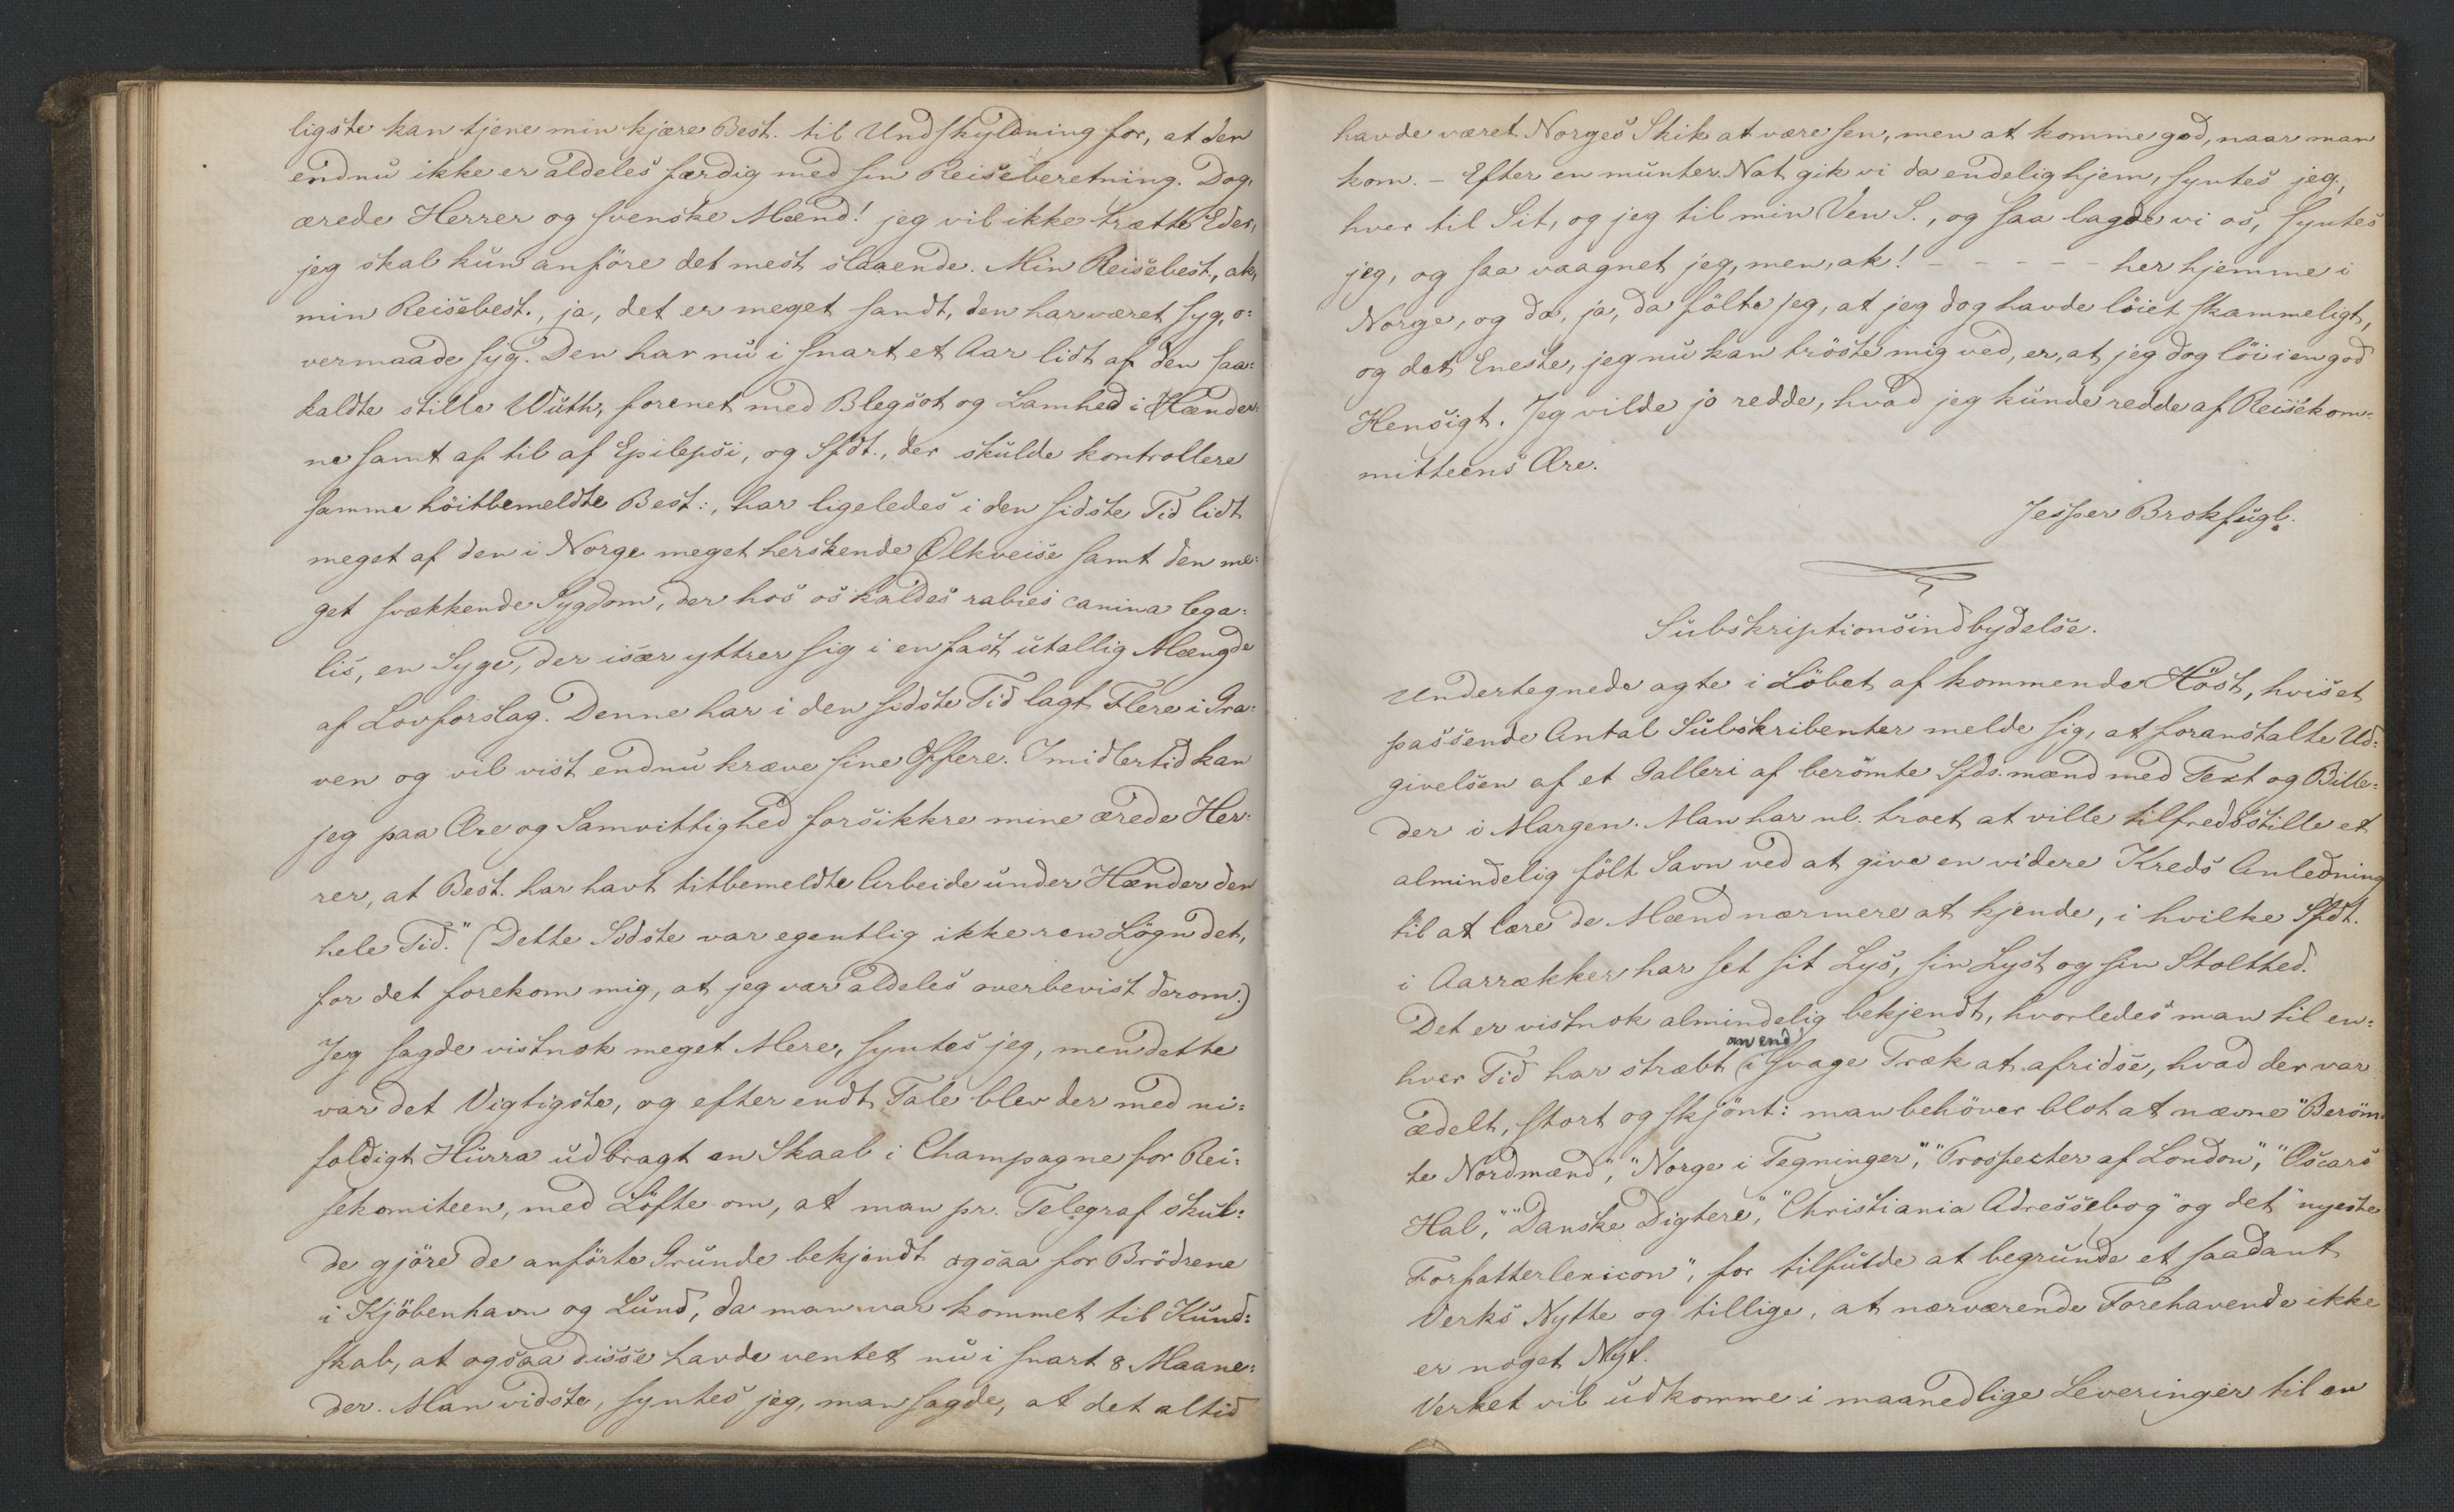 ligste kan tjene min kjære Best. til Undskyldning for, at den
endnu ikke er aldeles færdig med sin Reiseberetning. Dog,
ærede Herrer og svenske Mænd! jeg vil ikke trætte Eder,
jeg skal kun anföre det mest slaaende. Min Reisebest., ak,
min Reisebest., ja, det er meget sandt, den har været syg, o:
vermaade syg. Den har nu i snart et Aar lidt af den saa:
kaldte stille Wuth, forenet med Blegsot og Lamhed i Hænder:
ne samt af til af Epilepsi, og Sfdt., der skulde kontrollere
samme höitbemeldte Best:, har ligeledes i den sidste Tid lidt
meget af den i Norge meget herskende Ølkveise samt den me:
get svækkende Sygdom, der hos os kaldes rabies canina lega:
lis, en Syge, der især yttrer sig i en fast utallig Mængde
af Lovforslag. Denne har i den sidste Tid lagt Flere i Gra:
ven og vil vist endnu kræve sine Offere. Imidlertid kan
jeg paa Ære og Samvittighed forsikkre mine ærede Her:
rer, at Best. har havt titbemeldte Arbeide under Hænder den
hele Tid." (Dette Sidste var egentlig ikke ren Lögn det,
for det forekom mig, at jeg var aldeles overbevist derom.)
Jeg sagde vistnok meget Mere, syntes jeg, men dette
var det Vigtigste, og efter endt Tale blev der med ni:
foldigt Hurra udbragt en Skaal i Champagne for Rei:
sekomiteen, med Löfte om, at man pr. Telegraf skul:
de gjöre de anförte Grunde bekjendt ogsaa for Brödrene
i Kjöbenhavn og Lund, da man var kommet til Kund:
skab, at ogsaa disse havde ventet nu i snart 8 Maane:
der. Man vidste, syntes jeg, man sagde, at det altid
havde været Norges Skik at være sen, men at komme god, naar man
kom. – Efter en munter Nat gik vi da endelig hjem, syntes jeg,
hver til Sit, og jeg til min Ven S., og saa lagde vi os, syntes
jeg, og saa vaagnet jeg, men, ak! – – – – – her hjemme i
Norge, og da, ja, da fölte jeg, at jeg dog havde löiet skammeligt,
og det Eneste, jeg nu kan tröste mig ved, er, at jeg dog löi i en god
Hensigt. Jeg vilde jo redde, hvad jeg kunde redde af Reisekom:
mitteens Ære.
Jesper Brokfugl.
Subskriptionsindbydelse.
Undertegnede agte i Löbet af kommende Höst, hvis et
passende Antal Subskribenter melde sig, at foranstalte Ud:
givelsen af et Galleri af berömte Sfds.mænd med Text og Bille:
der i Margen. Man har nl. troet at ville tilfredsstille et
almindelig fölt Savn ved at give en videre Kreds Anledning
til at lære de Mænd nærmere at kjende, i hvilke Sfdt.
i Aarrækker har set sit Lys, sin Lyst og sin Stolthed.
Det er vistnok almindelig bekjendt, hvorledes man til en:
om end
hver Tid har stræbt i svage Træk at afridse, hvad der var
ædelt, stort og skjönt: man behöver blot at nævne "Beröm:
te Nordmænd", "Norge i Tegninger", "Prospecter af London", "Oscars
Hal", "Danske Digtere", "Christiania Adressebog" og det "nyeste
Forfatterlexicon", for tilfulde at begrunde et saadant
Verks Nytte og tillige, at nærværende Forehavende ikke
er noget Nyt.
Verket vil udkomme i maanedlige Leveringer til en